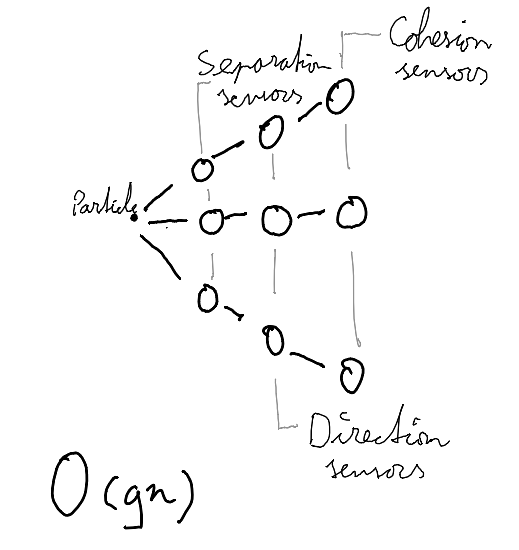 Cohesion
sensors
Separation
sensors
Particle
Direction
sensors
O(gn)